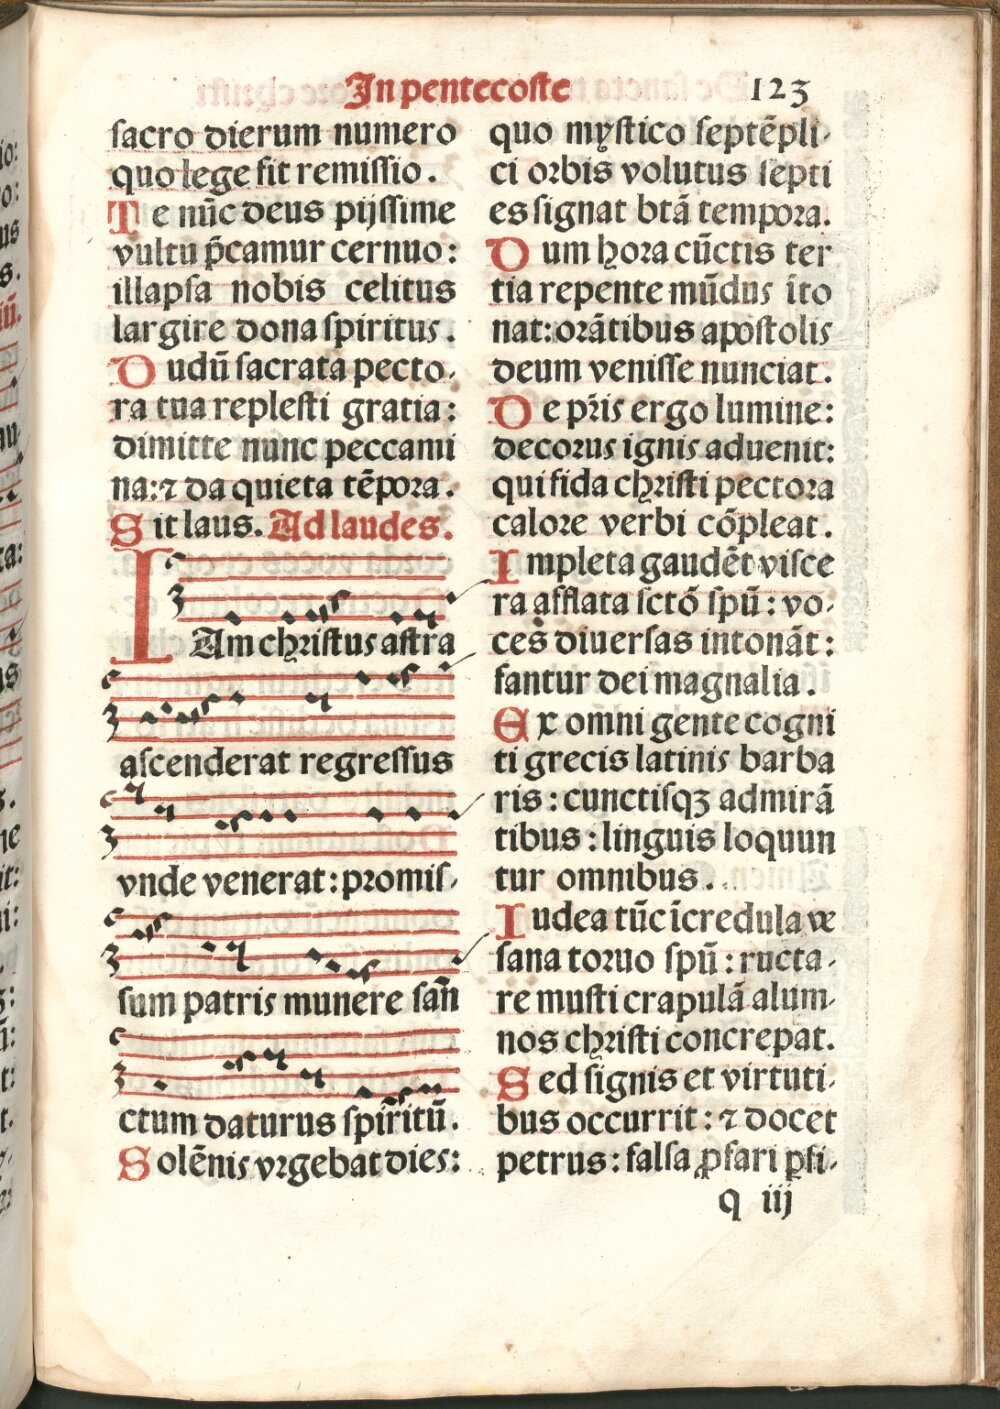 In pentecoste 123
sacro dierum numero
quo lege fit remissio.
Te nūc deus pijssime
vultu p̄camur cernuo:
illapsa nobis celitus
largire dona spiritus.
Dudū sacrata pecto-
ra tua replesti gratia:
dimitte nunc peccami
na: ⁊ da quieta tēpora.
Sit laus. Ad laudes.
IAm christus astra
ascenderat regressus
vnde venerat: promis-
sum patris munere san̄
ctum daturus spiritū.
Solēnis vrgebat dies:
quo mystico septēpli-
ci orbis volutus septi
es signat btā tempora.
Dum hora cūctis ter
tia repente mūdus īto
nat: orātibus apostolis
deum venisse nunciat.
De pr̄is ergo lumine:
decorus ignis aduenit:
qui fida christi pectora
calore verbi cōpleat.
Impleta gaudēt visce
ra afflata sctō spū: vo-
ces diuersas intonāt:
fantur dei magnalia.
Ex omni gente cogni
ti grecis latinis barba
ris: cunctisqꝫ admirā
tibus: linguis loquun
tur omnibus.
Iudea tūc īcredula ve
sana toruo spū: ructa-
re musti crapulā alum-
nos christi concrepat.
Sed signis et virtuti-
bus occurrit: ⁊ docet
petrus: falsa ꝓfari ꝑfi-
q iij